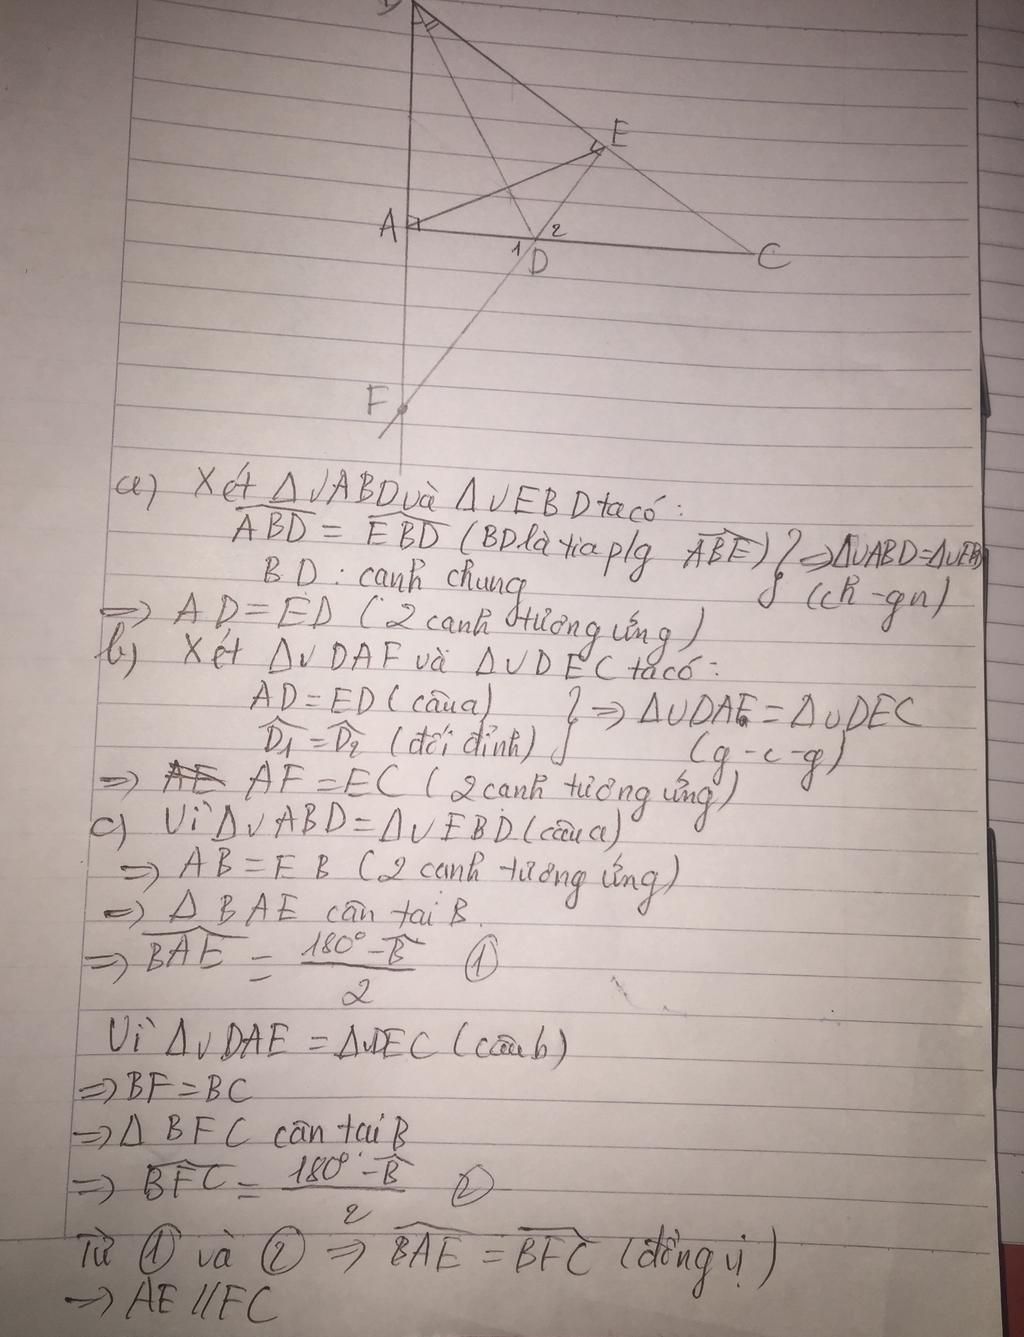 E
A
1 2
D
C
F
a) Xét Δv ABD và Δv EBD ta có:
ABD = EBD (BD là tia p/g ABE) } => ΔvABD = ΔvEBD
BD: cạnh chung (ch - gn)
=> AD = ED (2 cạnh tương ứng)
b) Xét Δv DAF và Δv DEC ta có:
AD = ED (câu a) } => ΔvDAE = ΔvDEC
D1 = D2 (đối đỉnh) (g-c-g)
=> AF = EC (2 cạnh tương ứng)
c) Vì ΔvABD = ΔvEBD (câu a)
=> AB = EB (2 cạnh tương ứng)
=> Δ BAE cân tại B.
=> BAE = (180° - B)/2 ①
Vì ΔvDAE = ΔvDEC (câu b)
=> BF = BC
=> Δ BFC cân tại B
=> BFC = (180° - B)/2 ②
Từ ① và ② => BAE = BFC (đồng vị)
=> AE // FC